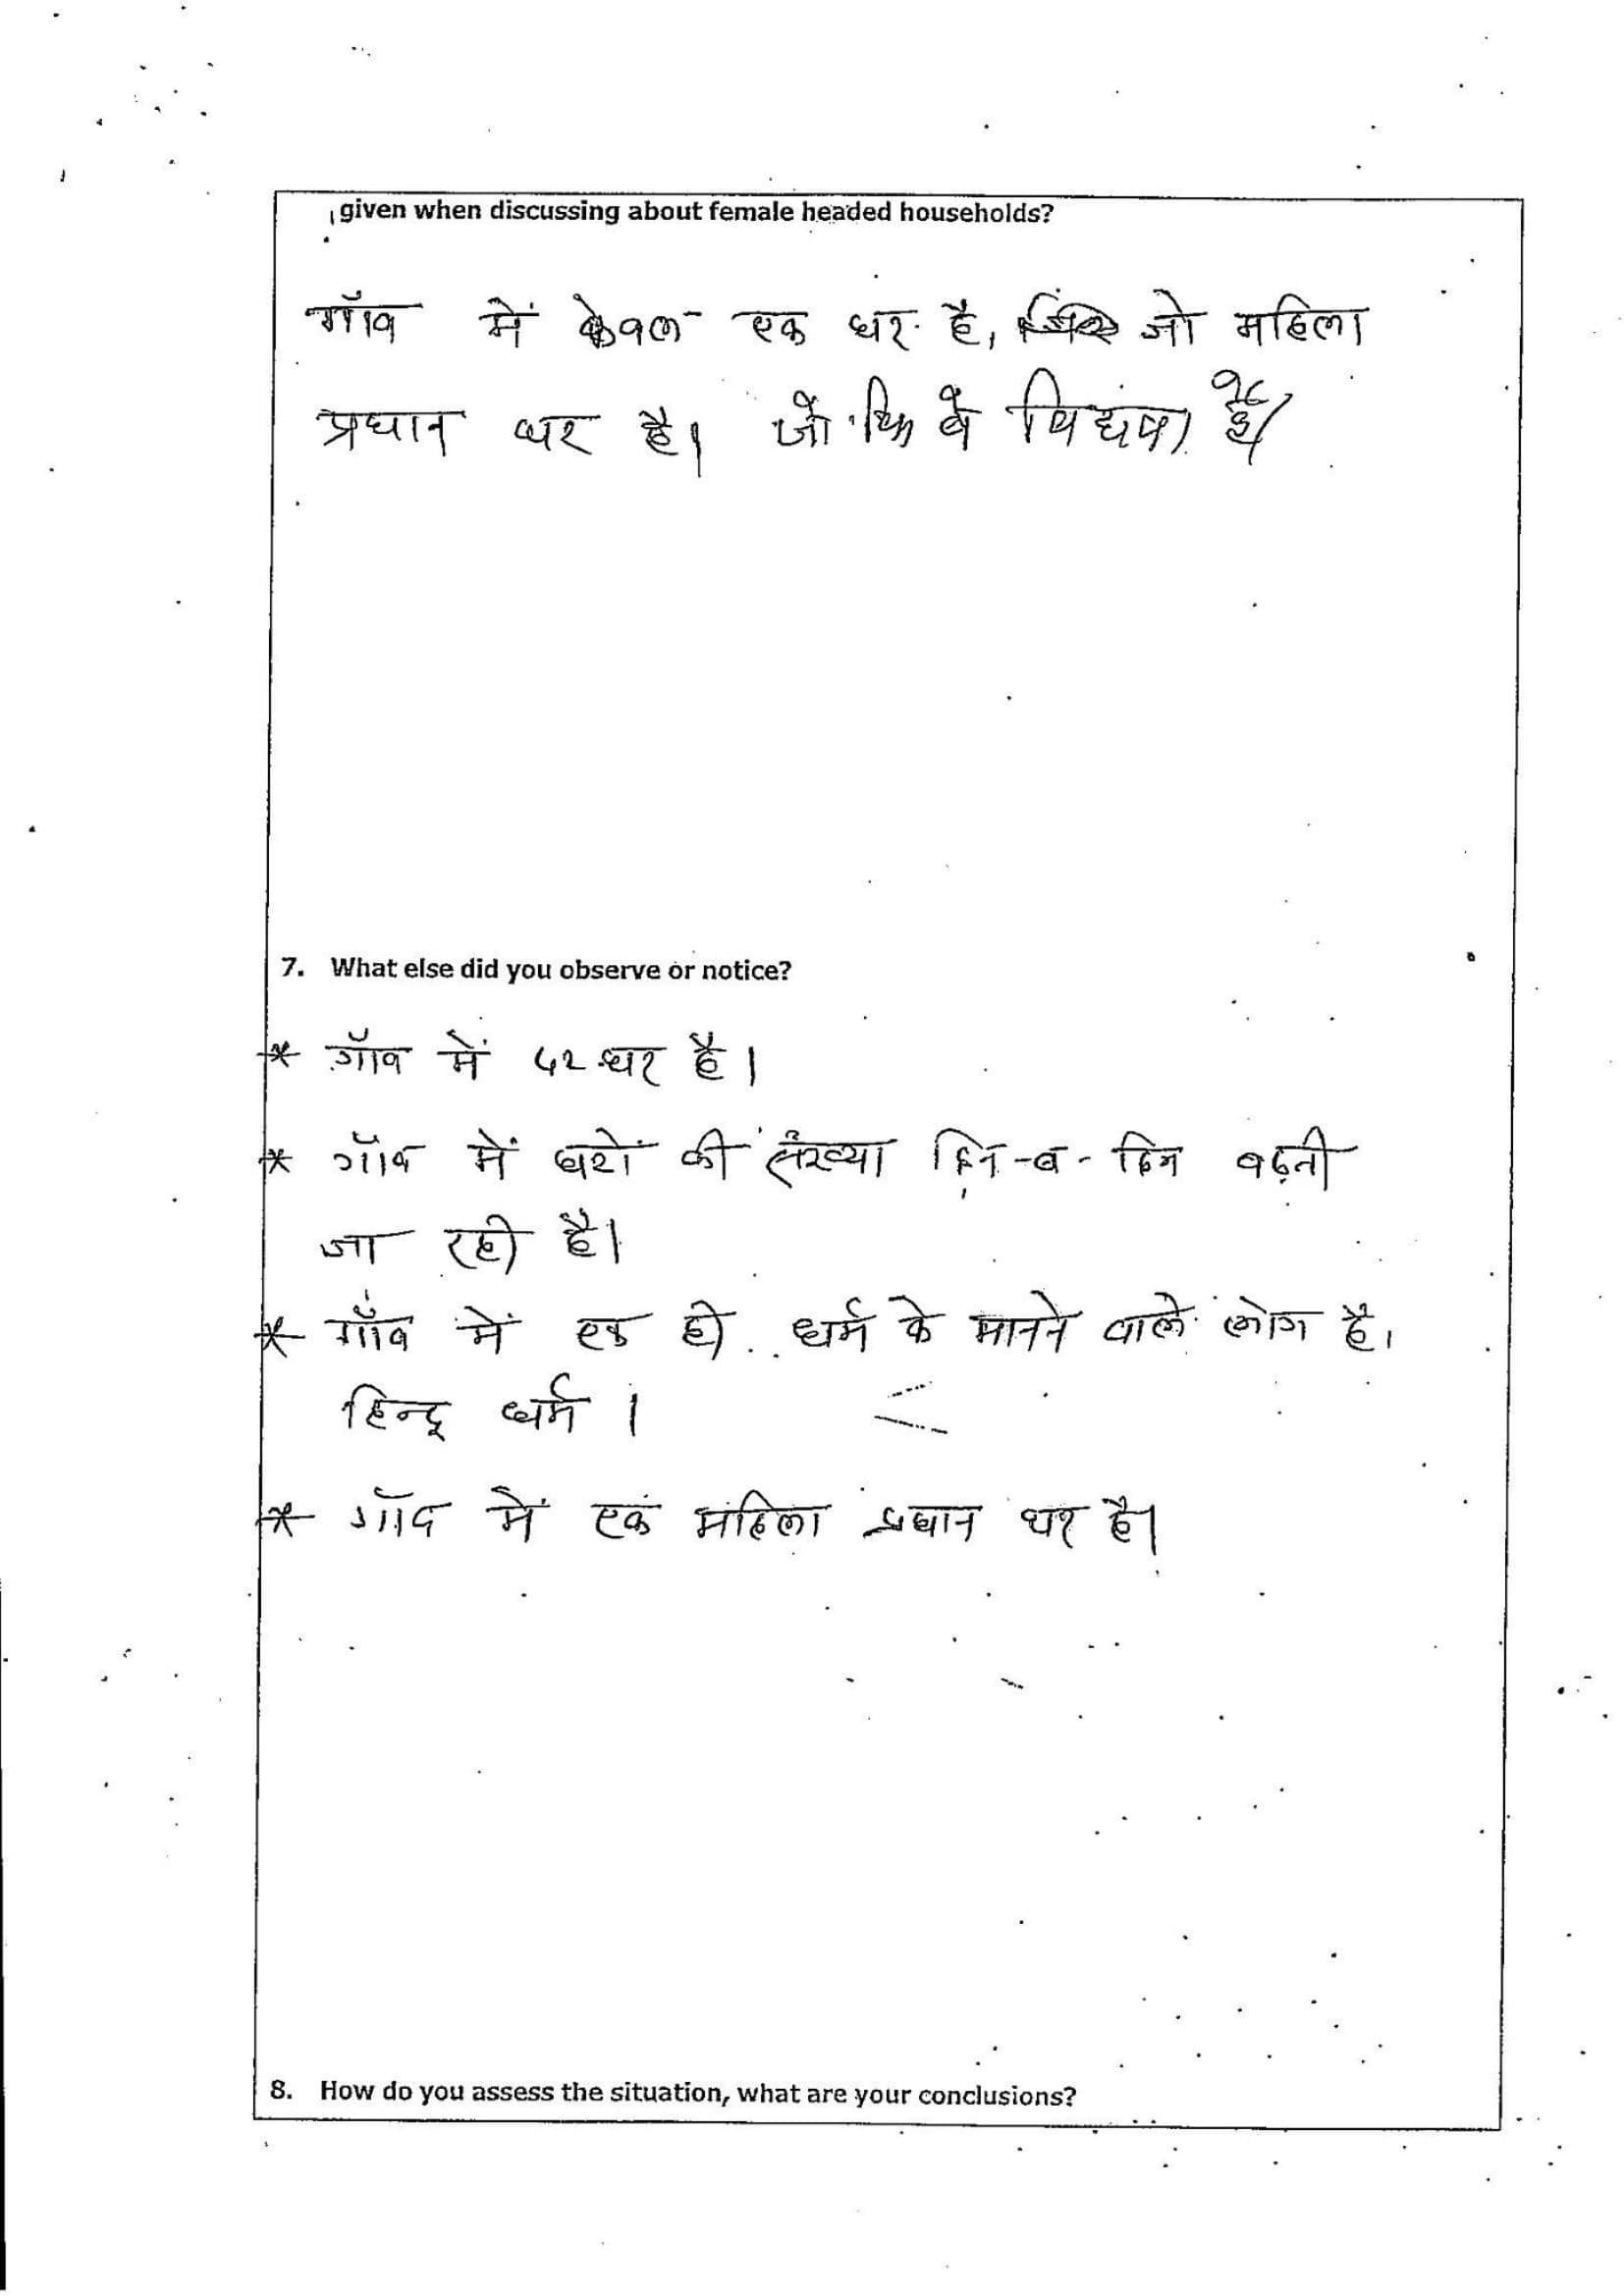 given when discussing about female headed households?
गाँव में केवल एक घर है, जो महिला
प्रधान घर है। जो कि वे विधवा है।
7. What else did you observe or notice?
* गाँव में ५२ घर है।
* गाँव में घरों की संख्या दिन-ब-दिन बढ़ती
जा रही है।
* गाँव में एक ही धर्म के मानने वाले लोग है,
हिन्दू धर्म।
* गाँव में एक महिला प्रधान घर है।
8. How do you assess the situation, what are your conclusions?